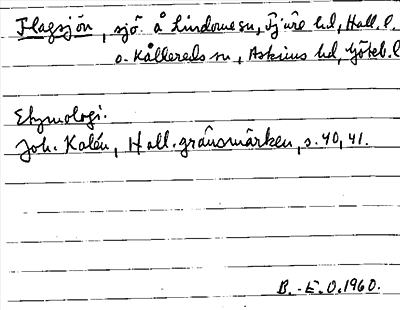 Flagsjön, sjö å Lindome sn, Fjäre hd, Hall. l.
o. Kållereds sn, Askims hd, Göteb. l
Etymologi.
Joh. Kalén, Hall. gränsmärken, s. 40, 41.
B.-E.O. 1960.